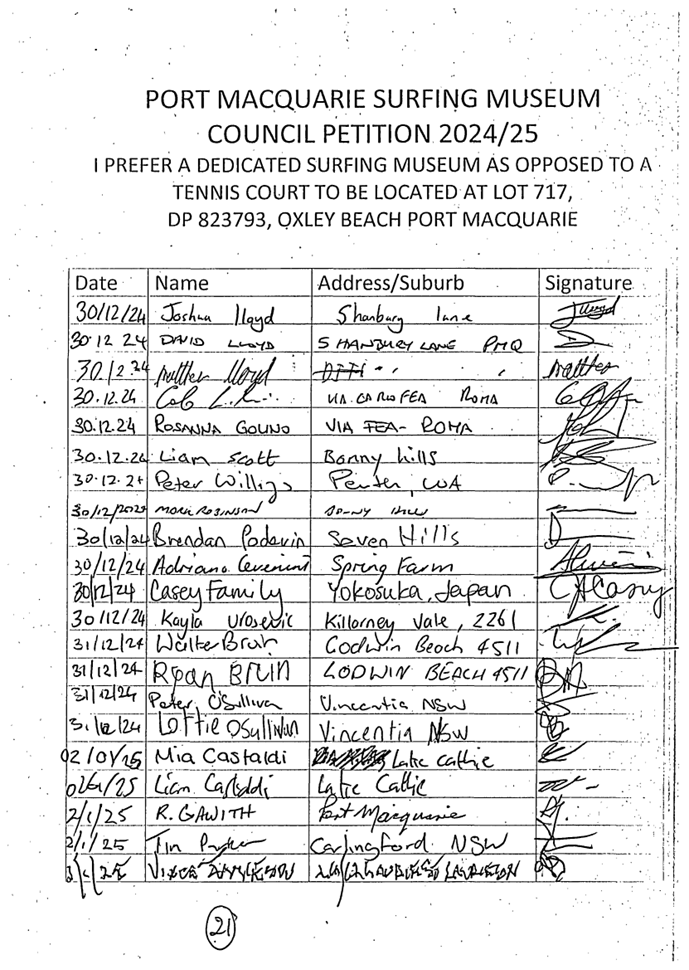 PORT MACQUARIE SURFING MUSEUM
COUNCIL PETITION 2024/25
I PREFER A DEDICATED SURFING MUSEUM AS OPPOSED TO A
TENNIS COURT TO BE LOCATED AT LOT 717,
DP 823793, OXLEY BEACH PORT MACQUARIE
Date Name Address/Suburb Signature
30/12/24 Joshua lloyd 5 hanbury lane
30.12 24 DAVID LLOYD 5 HANBURY LANE PMQ
30.12.24 lloyd
30.12.24 ROMA
30.12.24 ROSANNA VIA ROMA
30.12.24 Liam Scott Bonny hills
30.12.24 Peter WA
30/12/2024 MARK ROBINSON
30/12/24 Brendan Seven Hills
30/12/24 Adriano Spring Farm
30/12/24 Casey Family Yokosuka, Japan
30/12/24 Kayla Urosevic Killarney Vale, 2261
31/12/24 Walter Brun Godwin Beach 4511
31/12/24 Ryan BRUN GODWIN BEACH 4511
31/12/24 Peter O'Sullivan Vincentia NSW
31/12/24 Lottie OSullivan Vincentia NSW
02/01/25 Mia Castaldi Lake cathie
Liam Castaldi Lake Cathie
2/1/25 R. GAWITH Port Macquarie
2/1/25 Tim Carlingford NSW
21